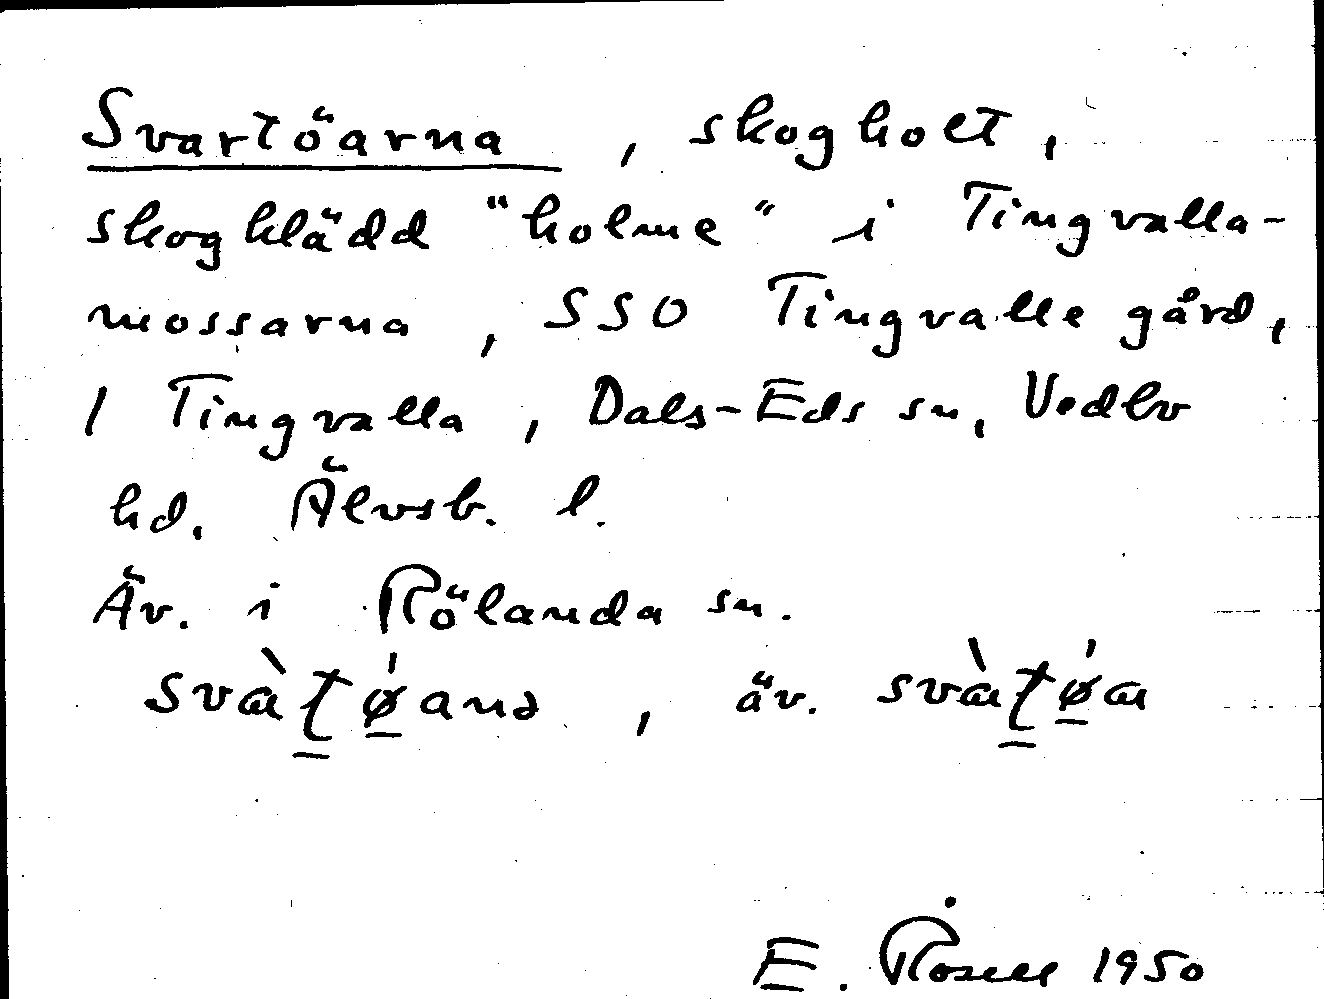 Svartöarna, skogholt,
skogklädd "holme" i Tingvalla-
mossarna, SSO Tingvalla gård,
1 Tingvalla, Dals-Eds sn, Vedbo
hd. Älvsb. l.
Äv. i Rölanda sn.
svàʈøanə, äv. svàʈøa
E. Rosell 1950